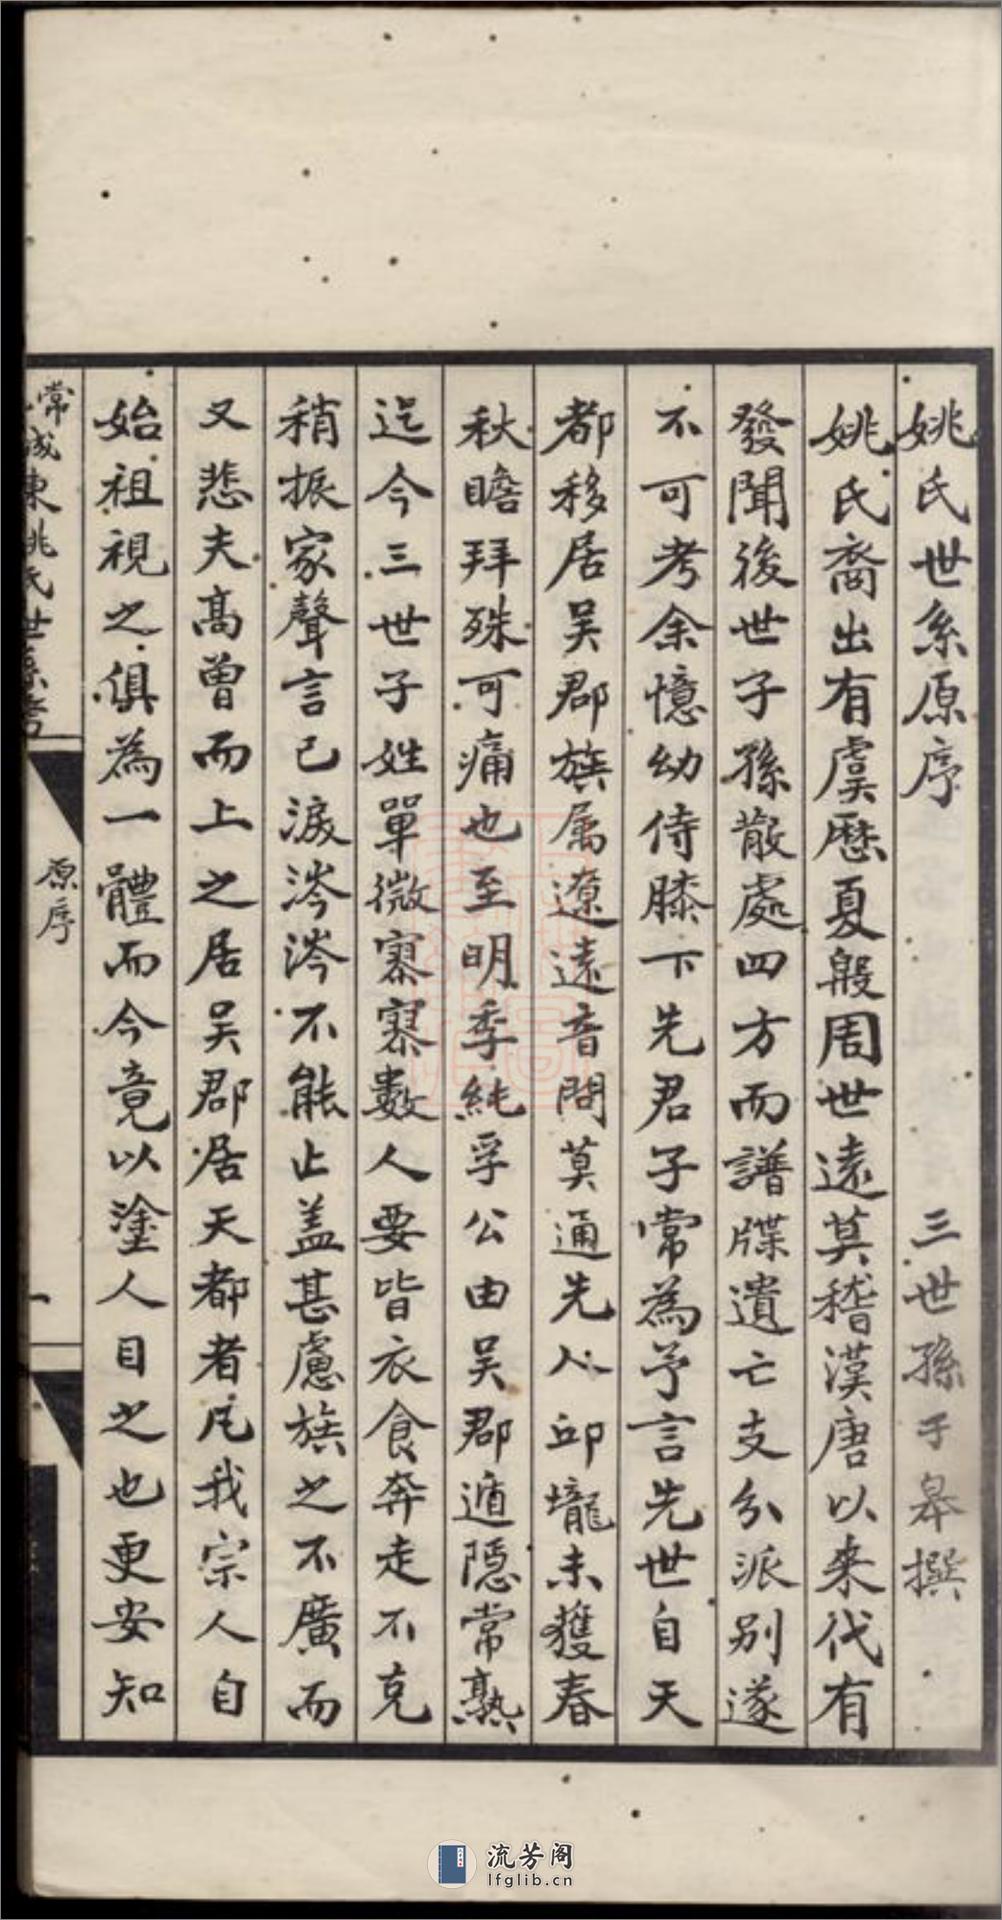 姚氏世系原序 三世孫子皋撰
姚氏裔出有虞歷夏殷周世遠莫稽漢唐以来代有
發聞後世子孫散處四方而譜牒遺亡支分派別遂
不可考余憶幼侍膝下先君子常為予言先世自天
都移居吴郡族属遼遠音問莫通先人邱壠未獲春
秋瞻拜殊可痛也至明季純孚公由吴郡遁隠常熟
迄今三世子姓單微寥寥數人要皆衣食奔走不克
稍振家聲言已淚涔涔不能止盖甚慮族之不廣而
又悲夫髙曽而上之居吴郡居天都者凡我宗人自
始祖視之俱為一體而今竟以塗人目之也更安知
常
城東姚氏世系考
原序
一
流芳阁
lfglib.cn